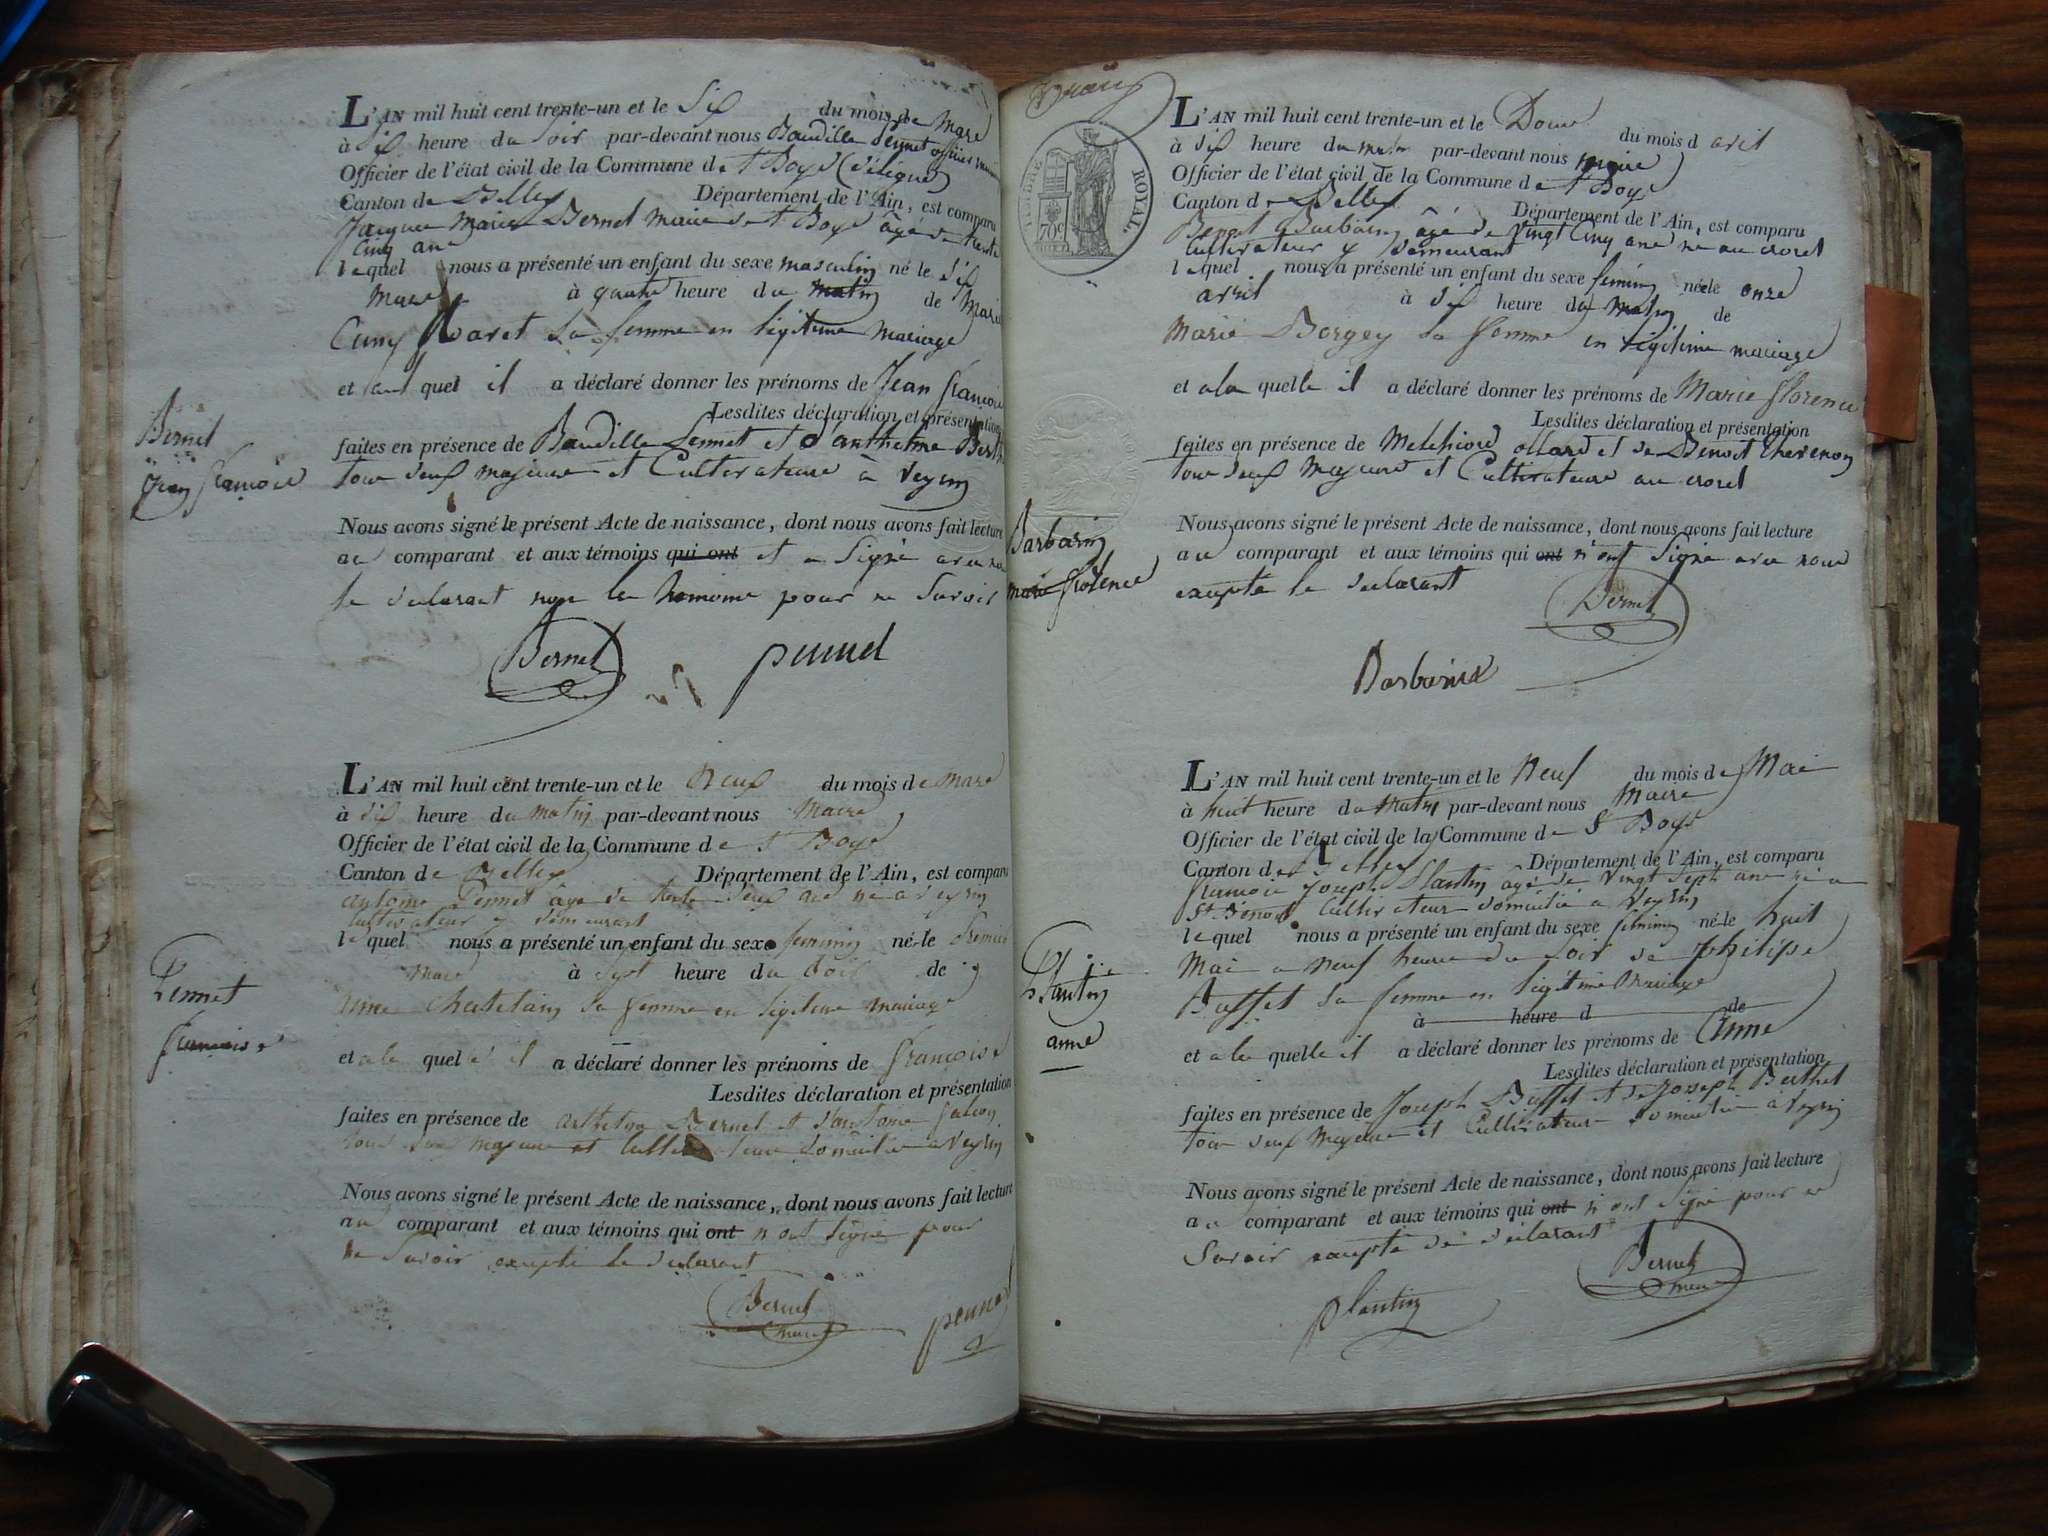 L'AN mil huit cent trente-un et le Six du mois de Mars
à six heure du soir par-devant nous Baudille Pennet officier
Officier de l'état civil de la Commune de St Boys (délégué)
Canton de Belley Département de l'Ain, est comparu
Jacques Marie Bernet maire de St Boys âgé de trente
cinq ans
lequel nous a présenté un enfant du sexe masculin né le Six
Mars à quatre heure du matin de Marie
sa femme en légitime mariage
et au quel il a déclaré donner les prénoms de Jean François
Lesdites déclaration et présentation
faites en présence de Baudille Pennet et d'anthelme
tous deux majeurs et Cultivateurs à Veyrin
Nous avons signé le présent Acte de naissance, dont nous avons fait lecture
au comparant et aux témoins qui ont et a Signé avec nous
le déclarant non le pour ne Savoir
Bernet
pennet
Bernet
Jean françois
L'AN mil huit cent trente-un et le Neuf du mois de Mars
à dix heure du matin par-devant nous Maire
Officier de l'état civil de la Commune de St Boys
Canton de Belley Département de l'Ain, est comparu
antoine Pennet âgé de trente deux ans né a veyrin
Cultivateur y demeurant
lequel nous a présenté un enfant du sexe feminin né le Premier
Mars à sept heure du Soir de
Chatelain sa femme en légitime mariage
et a la quelle il a déclaré donner les prénoms de françoise
Lesdites déclaration et présentation
faites en présence de Bernet et d'antoine falcon
tous deux majeurs et Cultivateurs domicilié a Veyrin
Nous avons signé le présent Acte de naissance, dont nous avons fait lecture
au comparant et aux témoins qui ont n'ont Signé pour
ne Savoir excepté le déclarant
Bernet
maire
pennet
Pennet
françoise
TIMBRE ROYAL
70c
L'AN mil huit cent trente-un et le Douze du mois d avril
à dix heure du matin par-devant nous maire
Officier de l'état civil de la Commune de St Boys
Canton de Belley Département de l'Ain, est comparu
Benoit Barbarin âgé de vingt Cinq ans né au crozet
Cultivateur y demeurant
lequel nous a présenté un enfant du sexe feminin née le onze
avril à dix heure du matin de
Marie Borgey sa femme en légitime mariage
et a la quelle il a déclaré donner les prénoms de Marie florence
Lesdites déclaration et présentation
faites en présence de Melchiord ollard et de Benoit Chevenon
tous deux Majeurs et Cultivateurs au crozet
Nous avons signé le présent Acte de naissance, dont nous avons fait lecture
au comparant et aux témoins qui ont n'ont Signé avec nous
excepté le declarant
Bernet
Barbarin
Barbarin
marie florence
L'AN mil huit cent trente-un et le Neuf du mois de Mai
à huit heure du matin par-devant nous Maire
Officier de l'état civil de la Commune de St Boys
Canton de Belley Département de l'Ain, est comparu
françois Joseph Plantin âgé de vingt Sept ans né a
St Benoit Cultivateur domicilié a Veyrin
lequel nous a présenté un enfant du sexe feminin né le huit
Mai a neuf heure du soir de philippe
Buffet sa femme en légitime Mariage
à heure d de
et a la quelle il a déclaré donner les prénoms de Anne
Lesdites déclaration et présentation
faites en présence de Joseph Buffet et de Joseph Berthet
tous deux Majeurs et Cultivateurs domicilié à Veyrin
Nous avons signé le présent Acte de naissance, dont nous avons fait lecture
au comparant et aux témoins qui ont n'ont Signé pour ne
Savoir excepté le déclarant
Bernet
maire
plantin
Plantin
anne